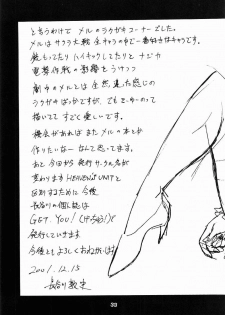 と言うわけで メルのラクガキコーナーでした。
メルは サクラ大戦 全キャラの中で一番好きなキャラです。
銃もってたり ハイキックしてたりと ナジカ
電撃作戦の影響をうけつつ
劇中のメルとは 全然違った感じの
ラクガキばっかですが、でもメーカーのって
描いてて すごく楽しいです。
機会があれば またメルの本とか
作りたいなー なんて思ってます。
あと 今回から 発行サークル名が
変わります HEAVEN'S UNITと
区別するために 今後
長谷川の個人誌は
GET YOU!(げっちゅう!)と
発行していきます
今後ともよろしくおねがいします
2001.12.15
33